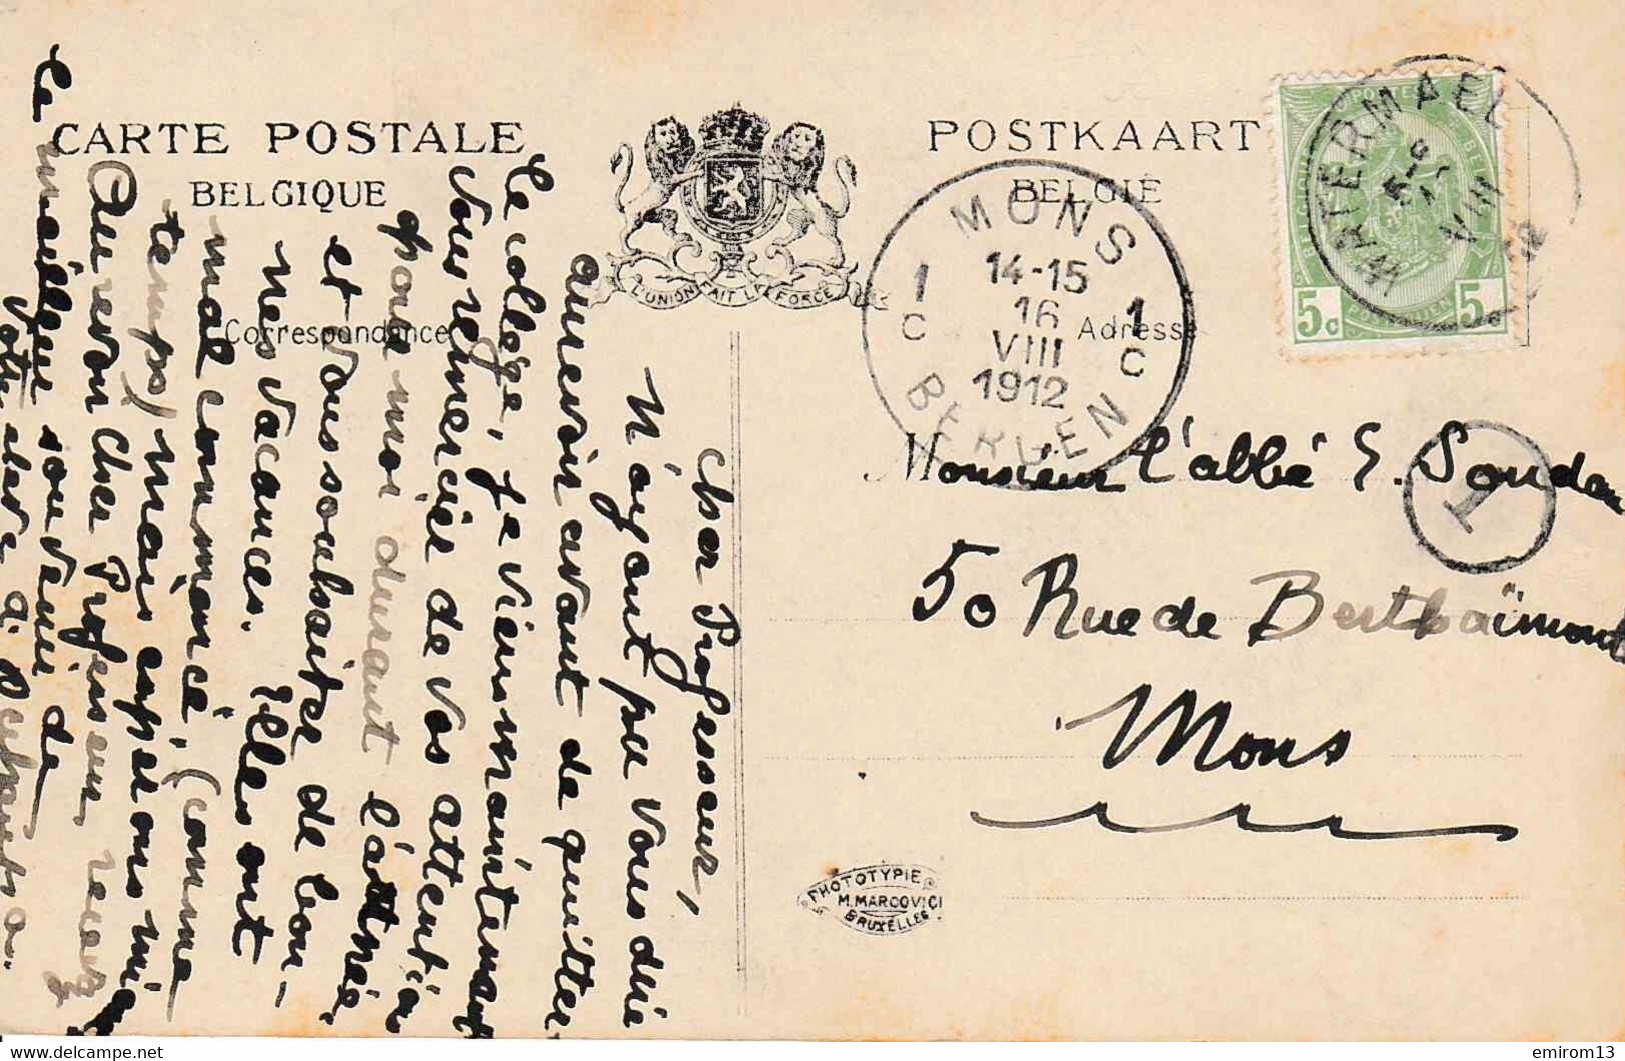 CARTE POSTALE
BELGIQUE
POSTKAART
BELGIË
L'UNION FAIT LA FORCE
Correspondance
Adresse
MONS
14-15
16
VIII
1912
BERGEN
1 C
1 C
WATERMAEL
VIII
12
POSTES
5c 5c
1
Monsieur l'abbé S. Soudan
50 Rue de Berthaïmont
Mons
Cher Professeur,
N'ayant pu vous dire
aurevoir avant de quitter
le collège, je viens maintenant
vous remercier de vos attentions
pour moi durant l'année
et vous souhaiter de bon-
nes vacances. Elles ont
mal commencé, (comme
temps) mais espérons mieux
Au revoir cher Professeur recevez
le meilleur souvenir de
votre élève
PHOTOTYPIE
M. MARCOVICI
BRUXELLES
delcampe.net
emirom13